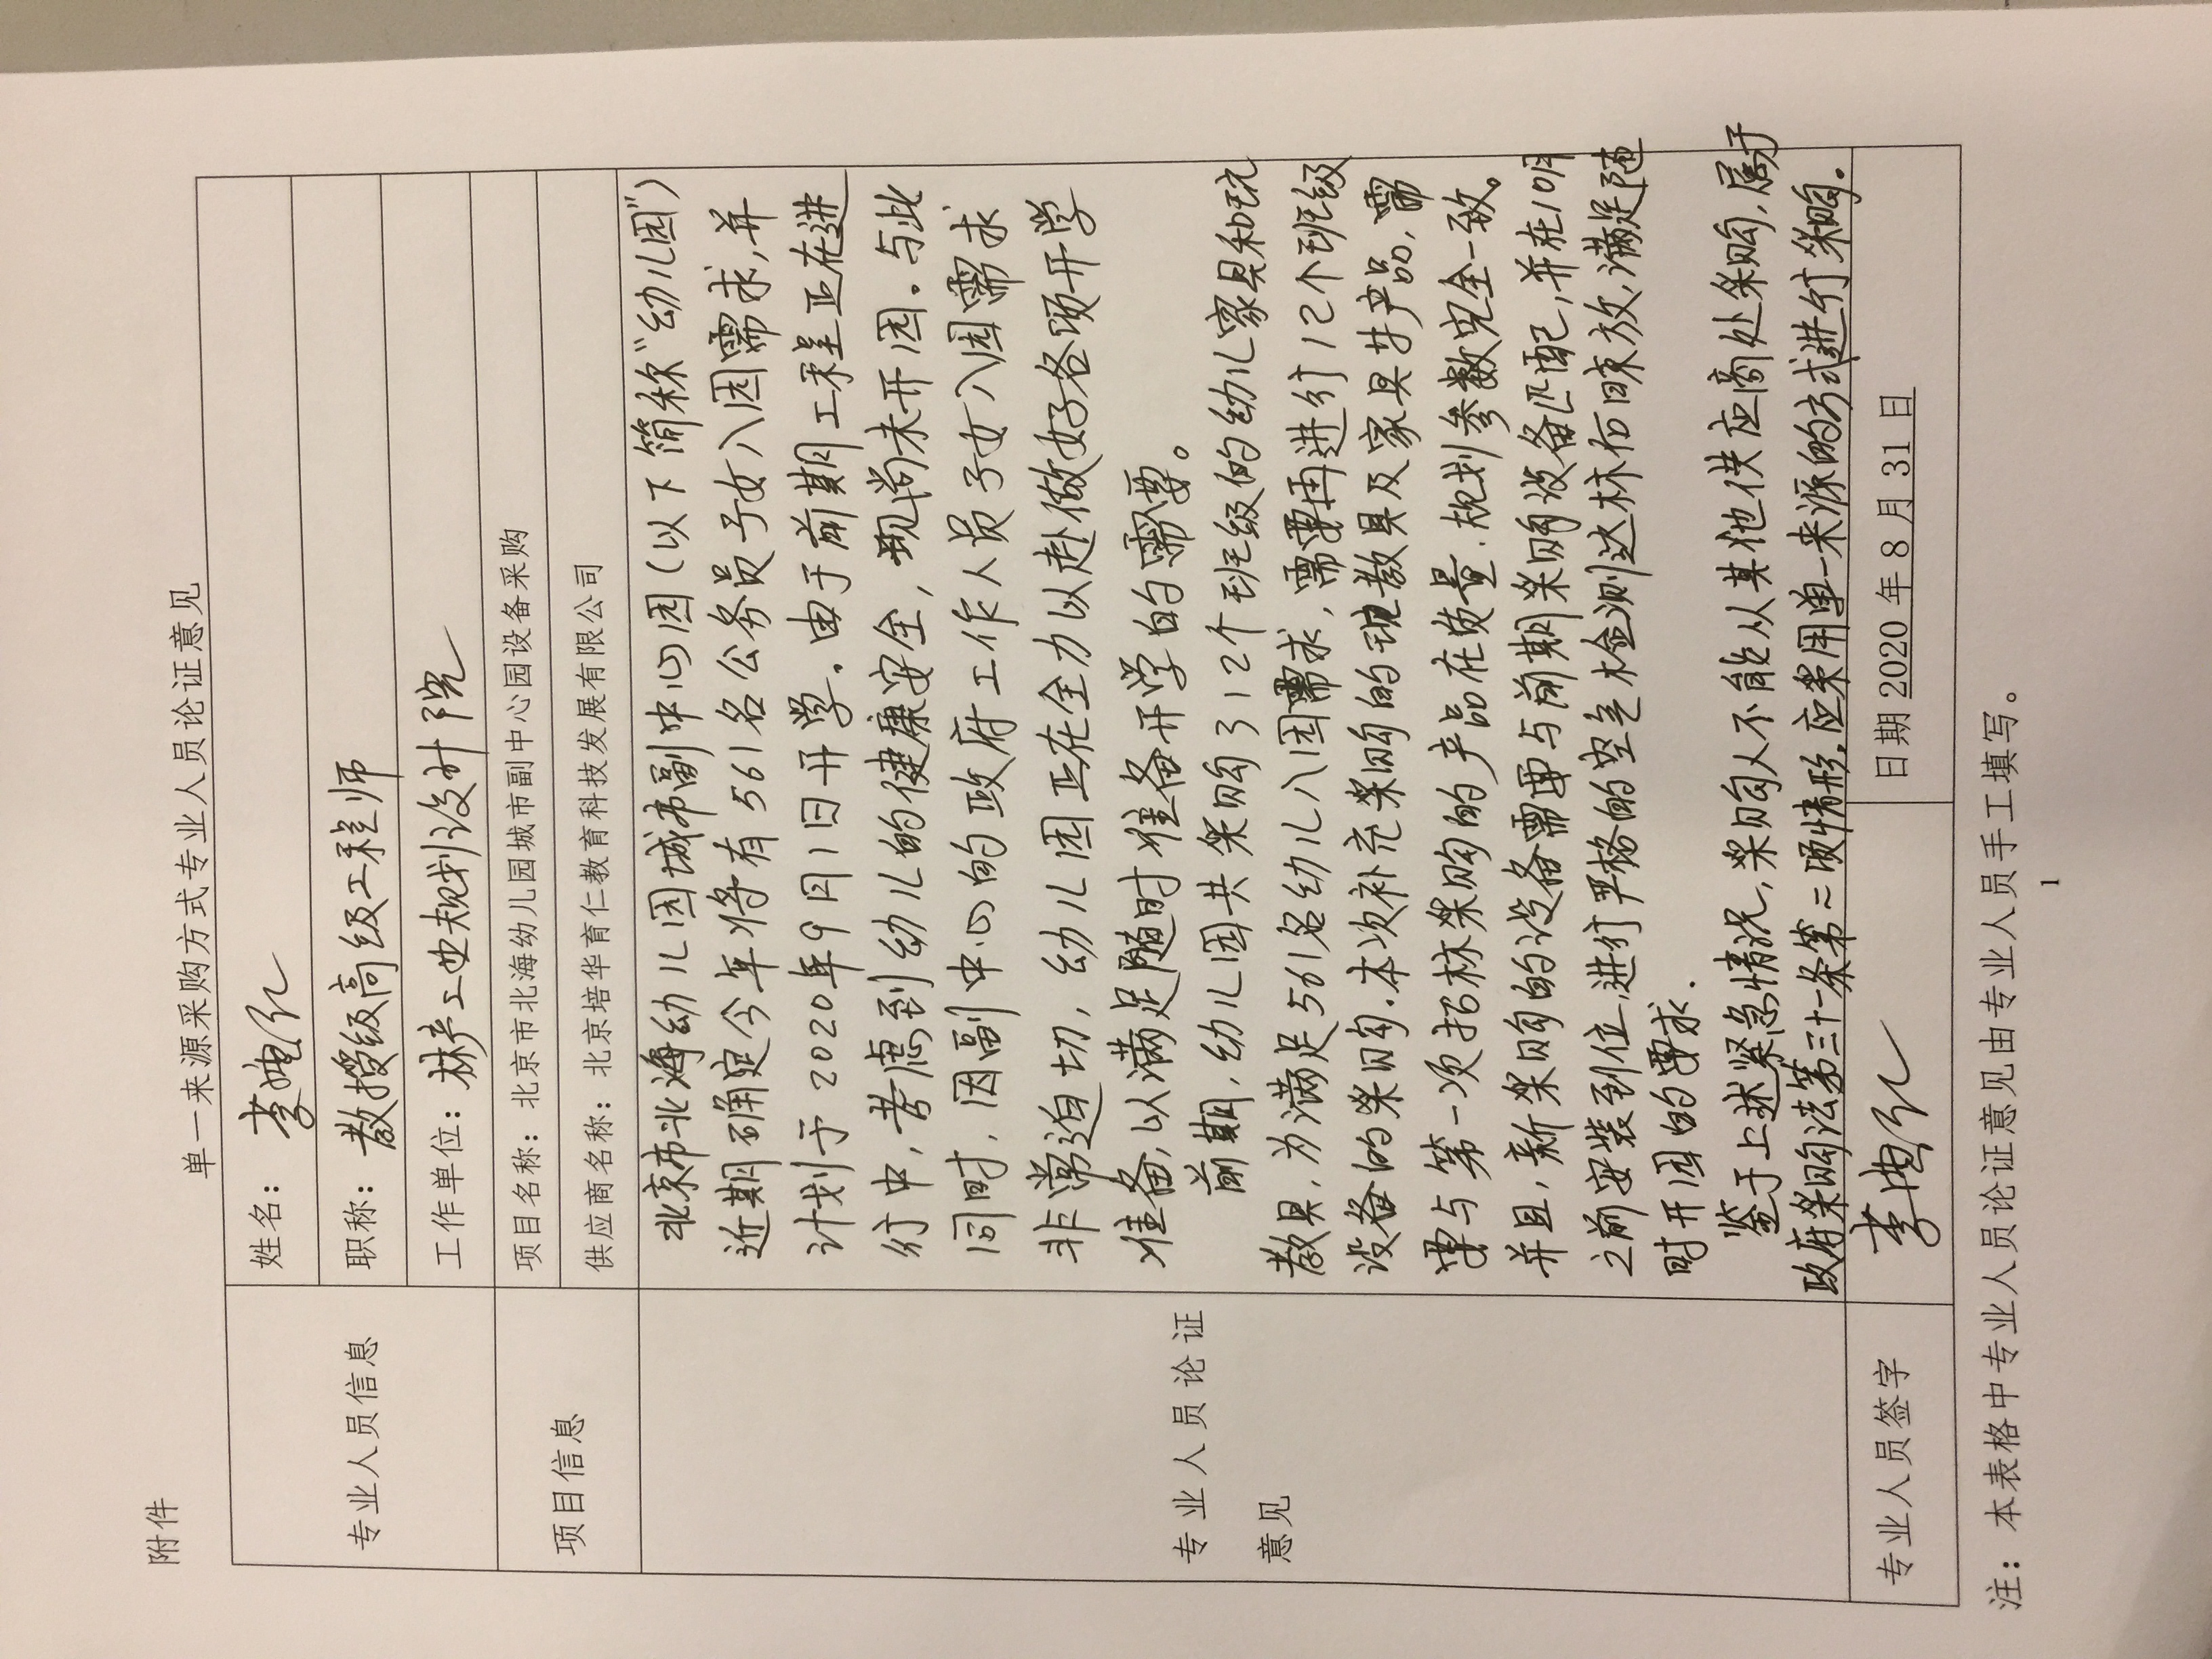 附件
单一来源采购方式专业人员论证意见
专业人员信息
姓名：李
职称：教授级高级工程师
工作单位：林产工业规划设计院
项目信息
项目名称：北京市北海幼儿园城市副中心园设备采购
供应商名称：北京培华育仁教育科技发展有限公司
专业人员论证
意见
北京市北海幼儿园城市副中心园（以下简称“幼儿园”）
近期确定今年将有561名公务员子女入园需求，并
计划于2020年9月1日开学。由于前期工程正在进
行中，考虑到幼儿的健康安全，现尚未开园。与此
同时，因副中心的政府工作人员子女入园需求
非常迫切，幼儿园正在全力以赴做好各项开学
准备，以满足随时准备开学的需要。
前期，幼儿园共采购了12个班级的幼儿家具和玩
教具，为满足561名幼儿入园需求，需要再进行12个班级
设备的采购。本次补充采购的玩教具及家具共产品，需
要与第一次招标采购的产品在质量、规划参数完全一致。
并且，新采购的设备需要与前期采购设备匹配，并在10月
之前安装到位，进行严格的空气检测达标后晾放，满足随
时开园的要求.
鉴于上述紧急情况，采购人不能从其他供应商处采购，属于
政府采购法第三十一条第二项情形，应采用单一来源的方式进行采购.
专业人员签字
李
日期 2020 年 8 月 31 日
注：本表格中专业人员论证意见由专业人员手工填写。
1